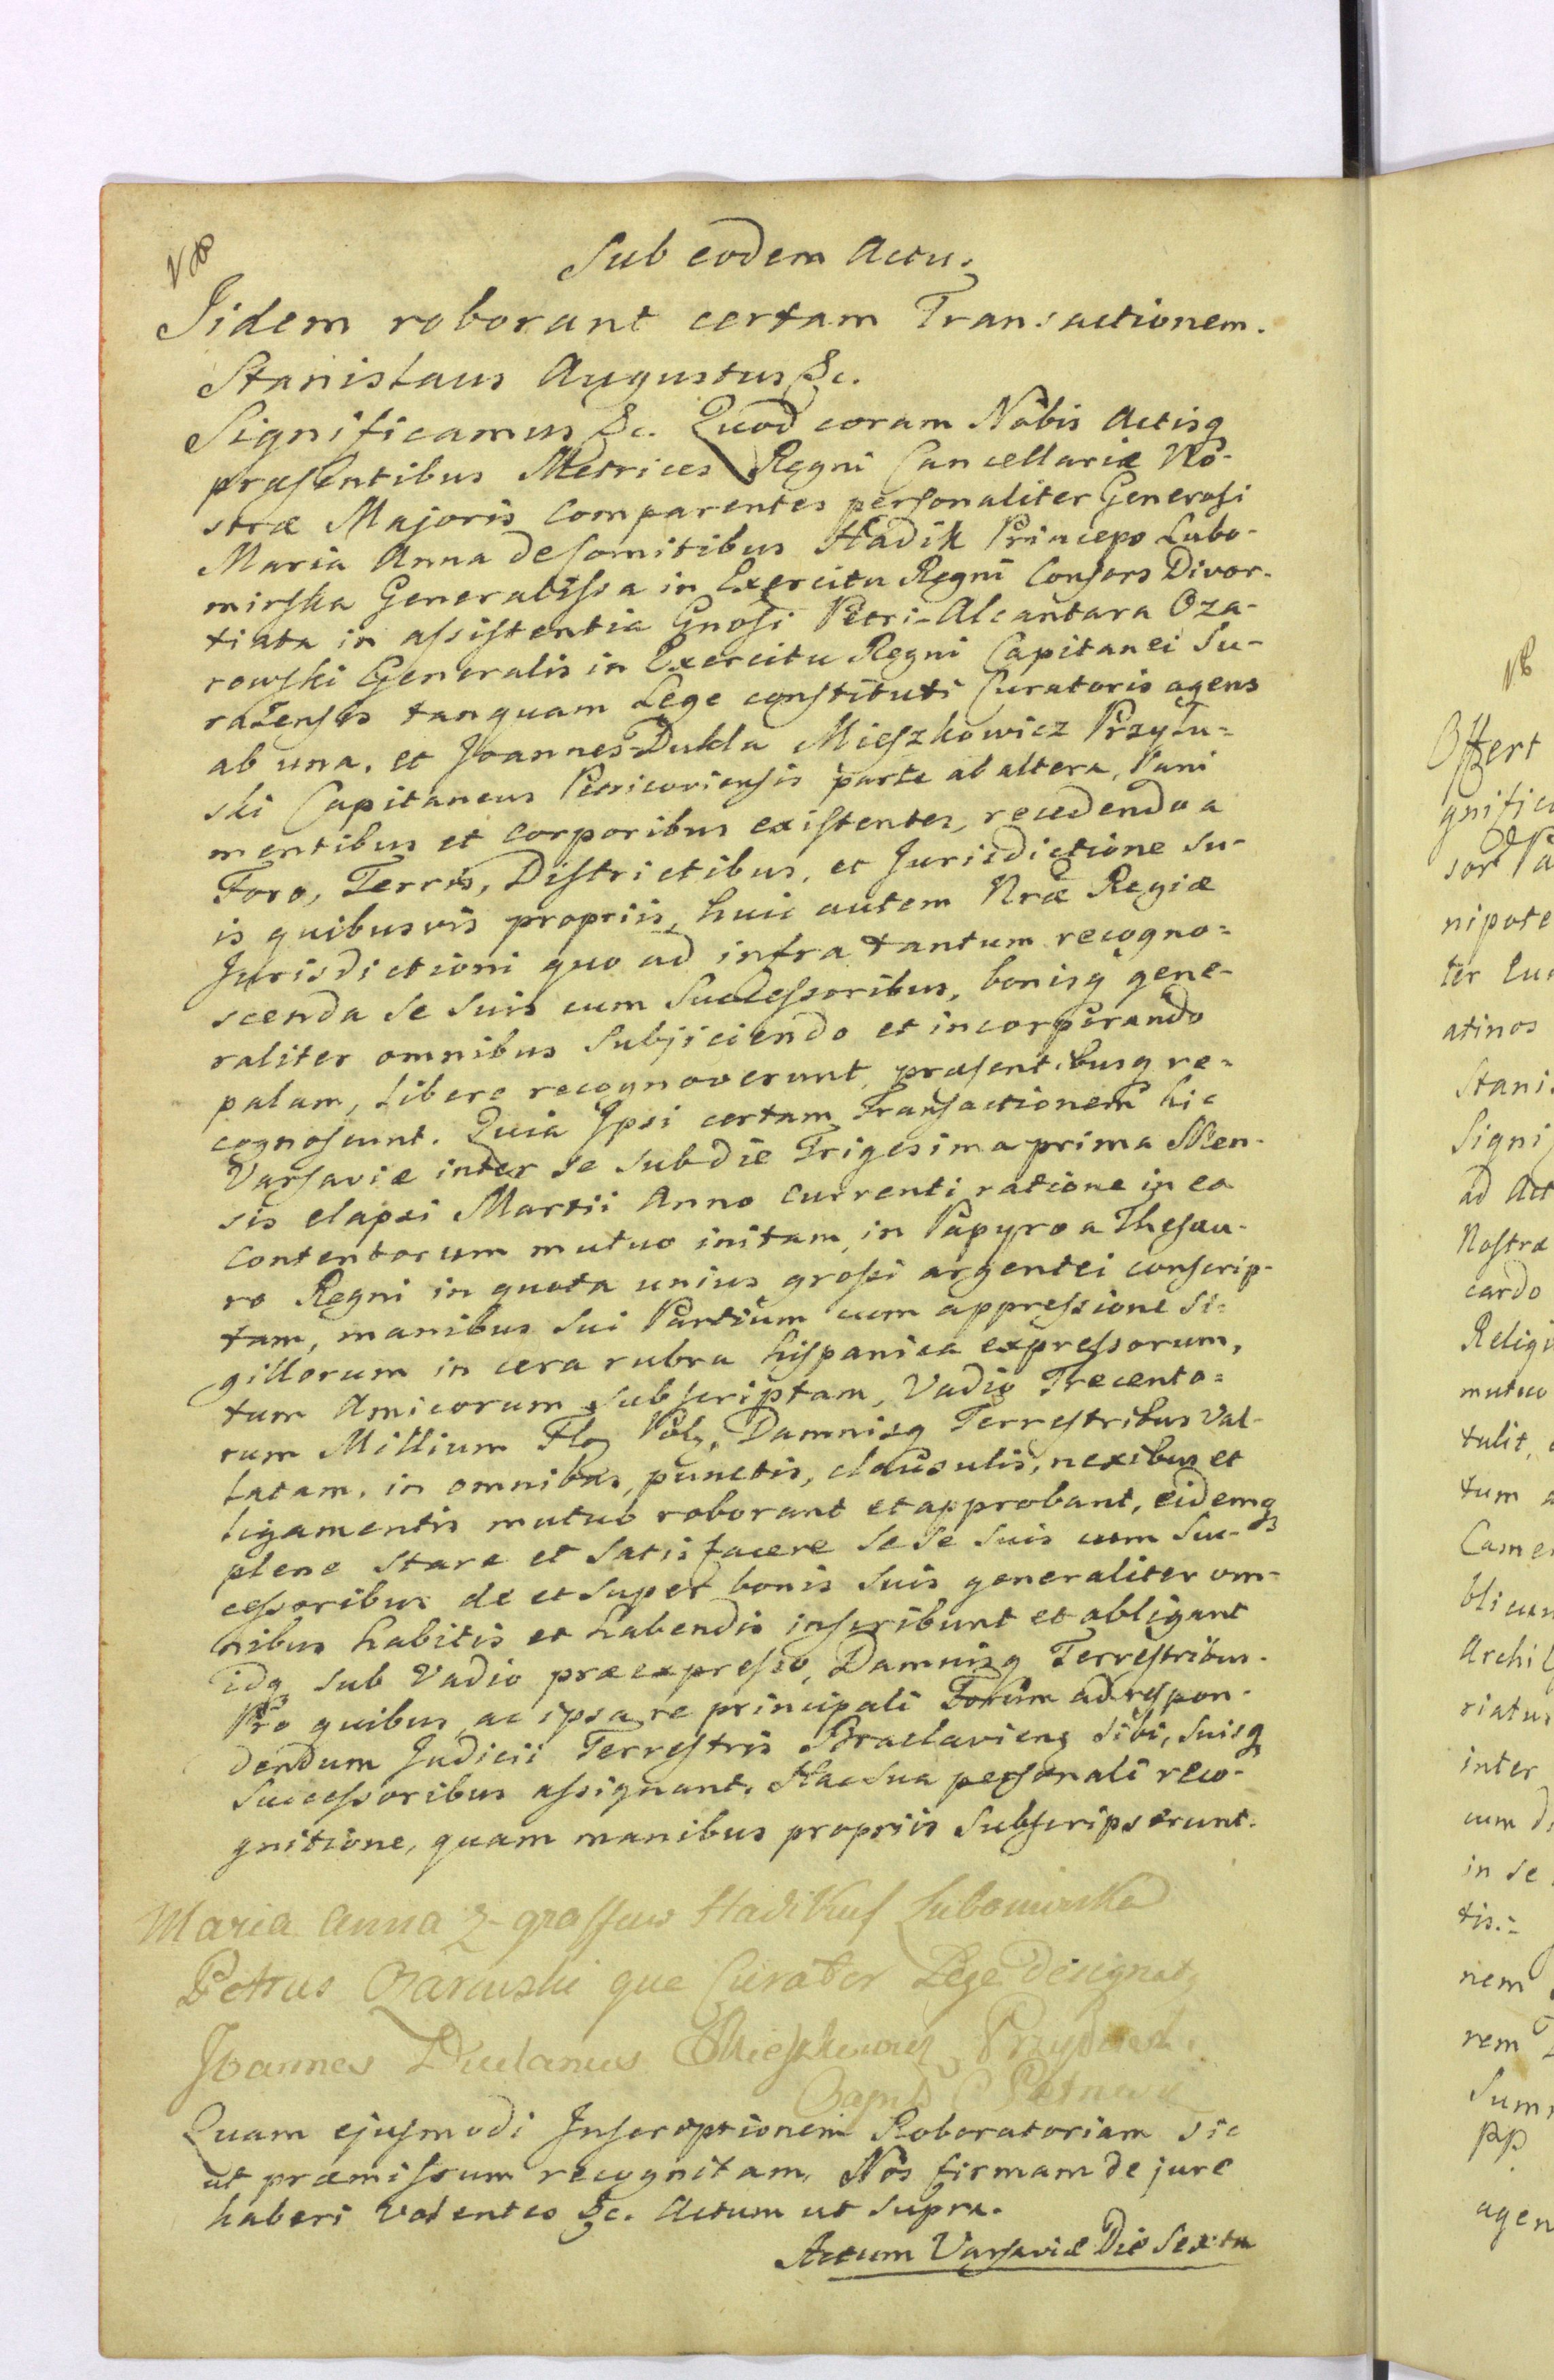 Sub eodem Actu.
Iidem roborant certam Transactionem.
Stanislaus Augustus &c.
Significamus &c. Quod coram Nobis Actisq
præsentibus Metrices Regni Cancellariæ No-
stræ Majoris Comparentes personaliter Generosi
Maria Anna de Comitibus Hadik Princeps Lubo-
mirska Generalissa in Exercitu Regni Consors Divor-
tiata in assistentia Gnosi Petri-Alcantara Oza-
rowski Generalis in Exercitu Regni Capitanei Su-
razensis tanquam Lege constituti Curatoris agens
ab una, et Joannes Dukla Mieszkowicz Przyłu-
ski Capitaneus Petricoviensis parte ab altera, Sani
mentibus et corporibus existentes, recedendo a
Foro, Terris, Districtibus, et Jurisdictione Su-
is quibusvis propriis, huic autem Nræ Regiæ
Jurisdictioni quo ad infra tantum recogno=
scenda se suis cum Successoribus, bonisq gene-
raliter omnibus Subjiciendo et incorporando
palam, libere recognoverunt, præsentibusq re=
cognoscunt. Quia Ipsi certam Transactionem hic
Varsaviæ inter se sub die Trigesima prima Men-
sis elapsi Martii Anno Currenti ratione in ea
Contentorum mutuo initam, in Papyro a Thesau-
ro Regni in quota unius grossi argentei conscrip-
tam, manibus Sui Partium cum appressione Si=
gillorum in cera rubra hispanica expressorum,
tum Amicorum Subscriptam, Vadio Trecento=
rum Millium Flo Pol, Damnisq Terrestribus Val-
latam, in omnibus, punctis, clausulis, nexibus et
ligamentis mutuo roborant et approbant, eidemq
plene Stare et Satisfacere sese Suis cum Suc-
cessoribus de et super bonis Suis generaliter om-
nibus habitis et habendis inscribunt et obligant
idq sub Vadio præexpresso, Damnisq Terrestribus.
Pro quibus, ac ipsa re principali Forum ad respon-
dendum Judicii Terrestris Braclaviens Sibi, Suisq
Successoribus assignant. Hac Sua personali reco-
gnitione, quam manibus propriis Subscripserunt.
Maria Anna z graffuw Hadikuf Lubomirska
Petrus Ozarowski que Curator Lege designat
Joannes Duclanus Mieszkowicz Przyłuski
Quam ejusmodi Inscriptionem Roboratoriam sic
ut præmissum recognitam, Nos firmam de jure
haberi Volentes &c. Actum ut Supra.
Actum Varsaviæ Die Sexta
Offert
gnific
nipote
ter
atinos
Stani
Signi
ad Act
Nostræ
cardo
Religi
mutuo
tulit,
tum
Came
blicu
Archi
riatus
inter
cum
in se
tis.=
nem
rem
Sum
agen